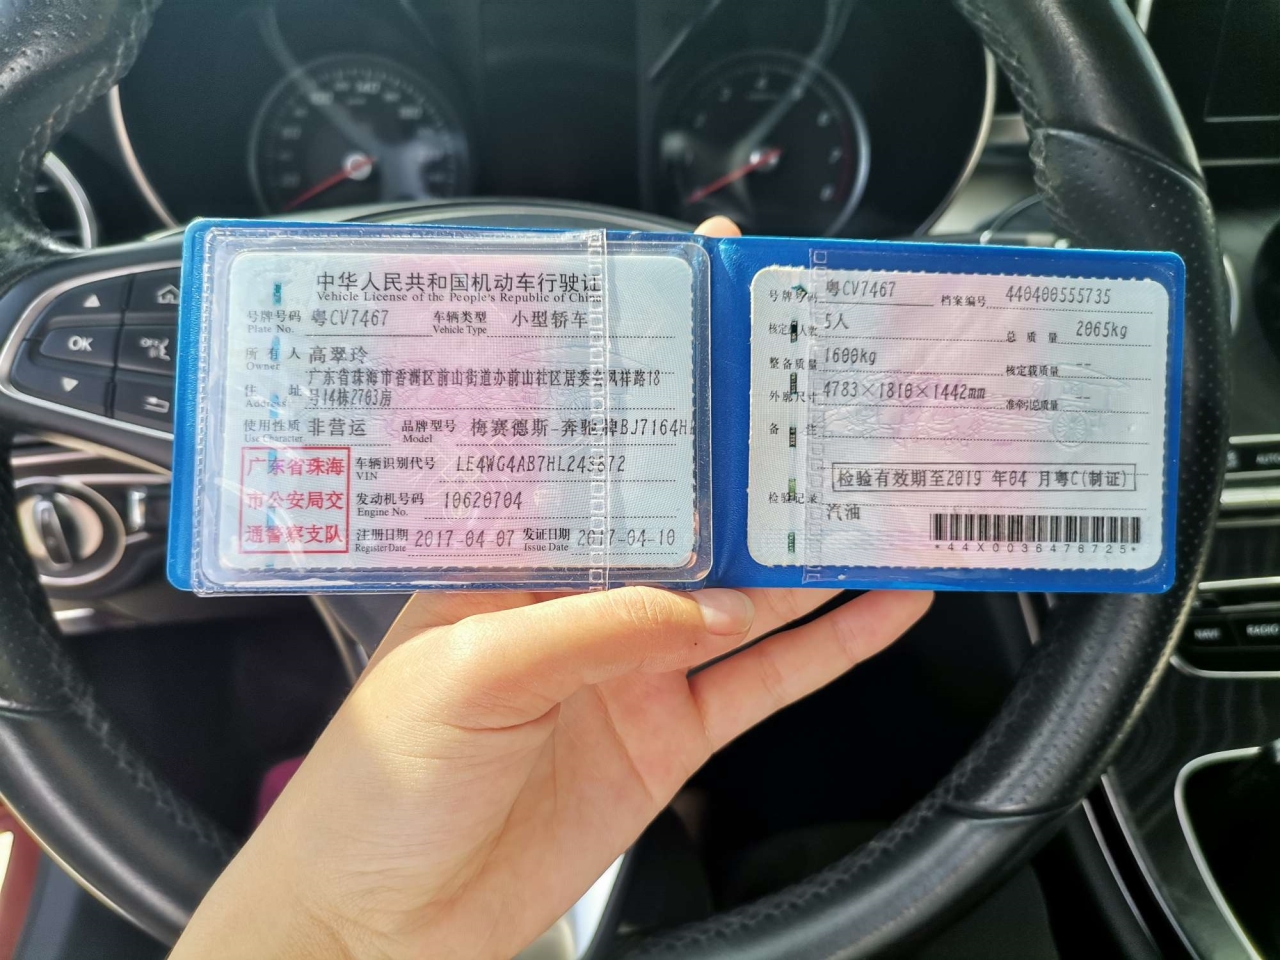 中华人民共和国机动车行驶证
Vehicle License of the People's Republic of China
号牌号码 粤CV7467 车辆类型 小型轿车
Plate No. Vehicle Type
所有人 高翠玲
Owner
住址 广东省珠海市香洲区前山街道办前山社区居委会凤祥路18
号14栋2703房
Address
使用性质 非营运 品牌型号 梅赛德斯-奔驰牌BJ7164H
Use Character Model
广东省珠海
市公安局交
通警察支队
车辆识别代号
VIN
发动机号码 10620704
Engine No.
注册日期 2017-04-07 发证日期 2017-04-10
Register Date Issue Date
号牌号码 粤CV7467 档案编号 440400555735
核定载人数 5人 总质量 2065kg
整备质量 1600kg 核定载质量 --
外廓尺寸 4783×1810×1442mm 准牵引总质量 --
备注
检验有效期至2019 年04 月粤C(制证)
检验记录
汽油
*44X0036476725*
OK
NAVI
RADIO
AUTO